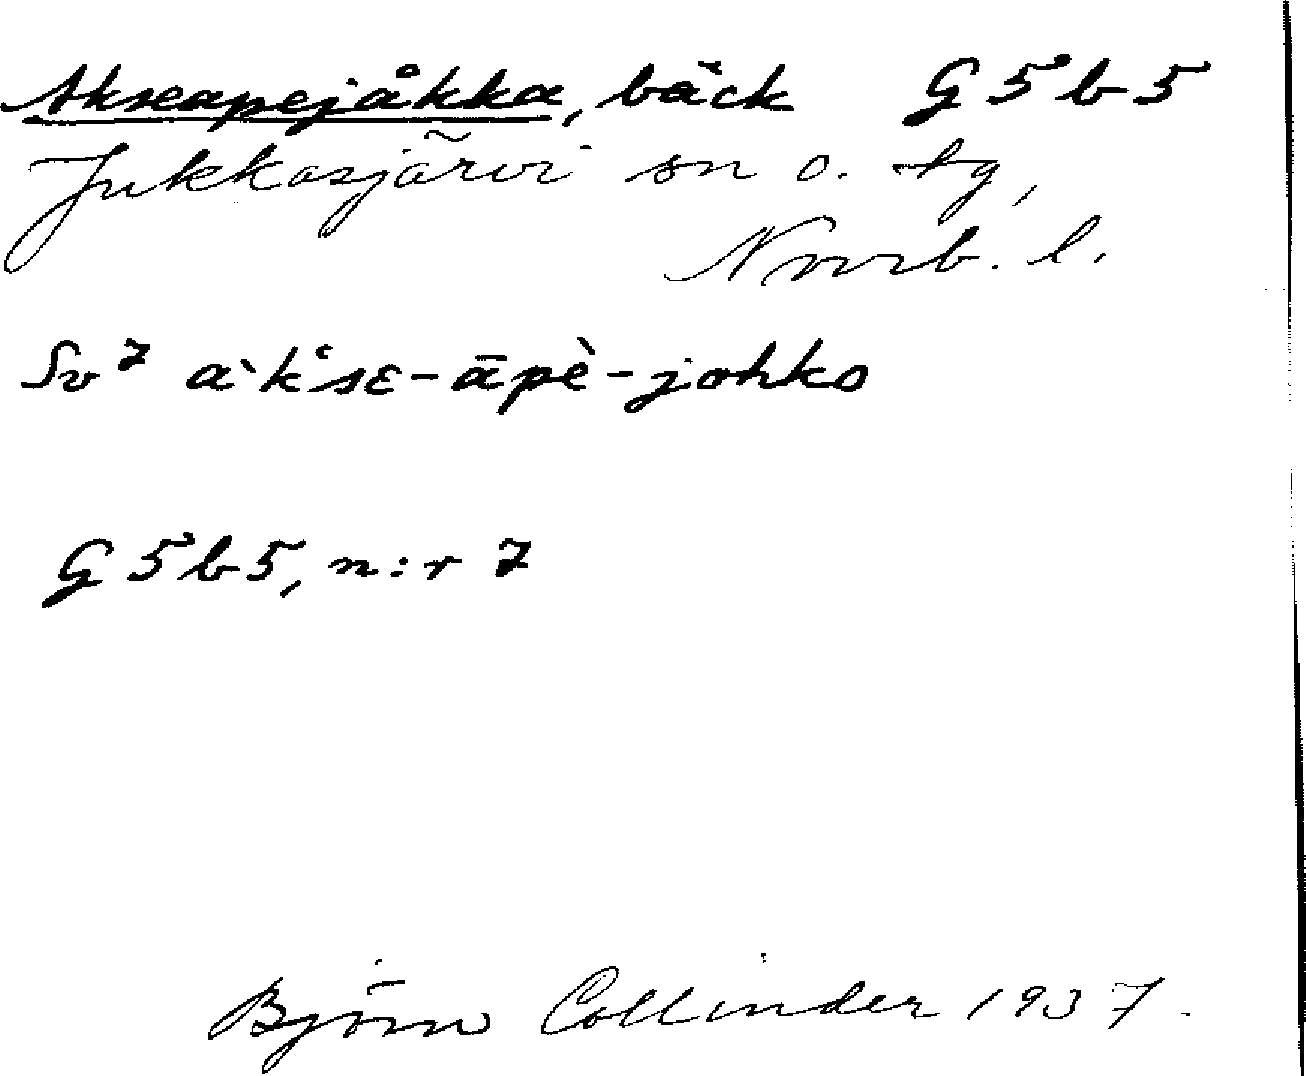 Akseapejåkka, bäck G 5 b 5
Jukkasjärvi sn o. tg,
Norrb. l.
Sv 7 a`k'sɛ-āpè-johko
G 5 b 5, n:r 7
Björn Collinder 1937.